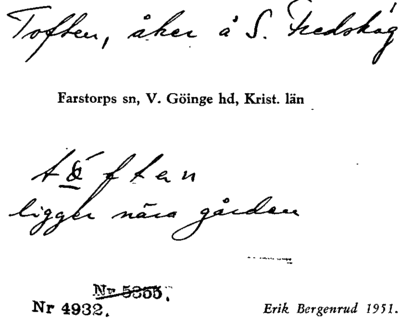 Toften, åker å S. Fredskog
Farstorps sn, V. Göinge hd, Krist. län
ligger nära gården
Nr 5355.
Nr 4932.
Erik Bergenrud 1951.